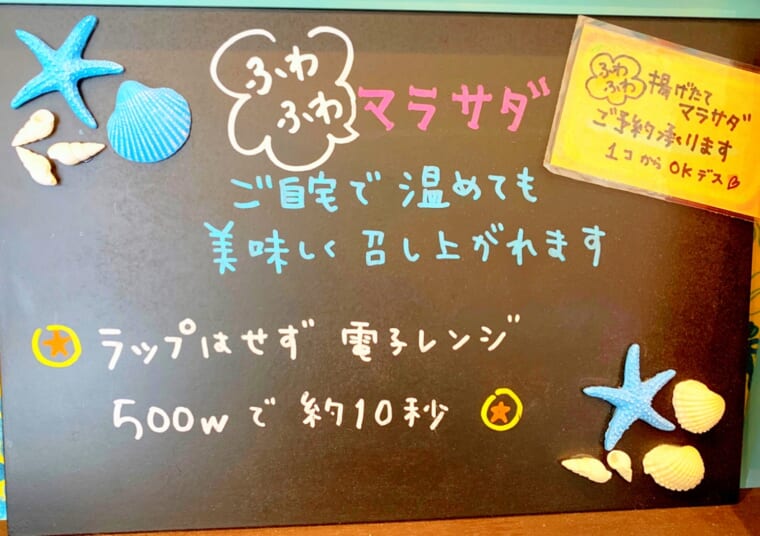 ふわ
ふわ
マラサダ
ご自宅で 温めても
美味しく 召し上がれます
ラップはせず 電子レンジ
500wで 約10秒
ふわ
ふわ
揚げたて
マラサダ
ご予約承ります
1コから OKデス